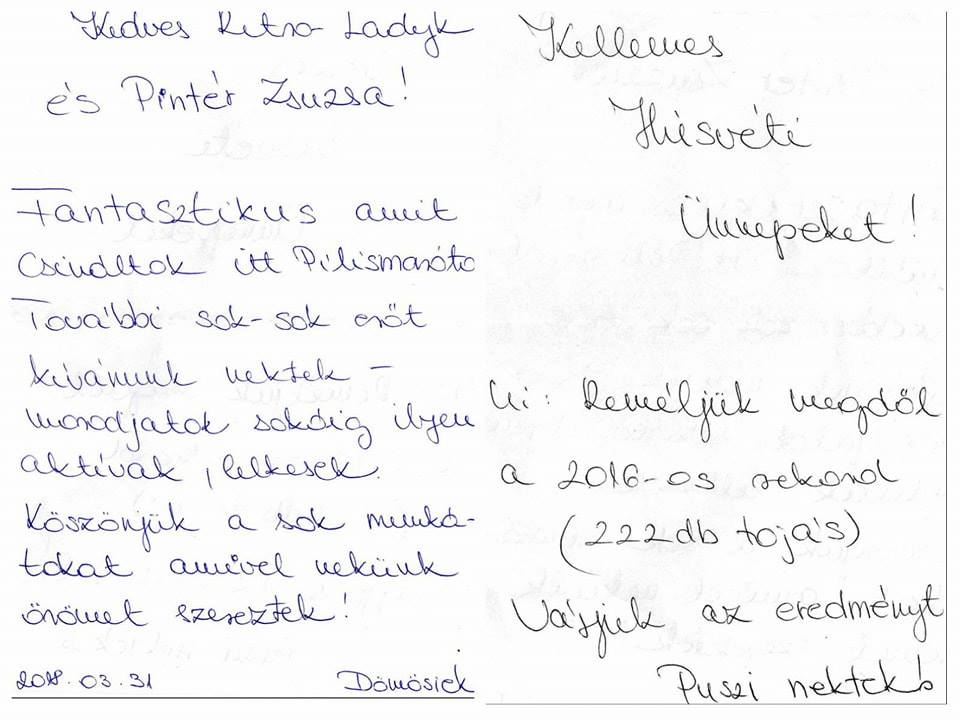 Kedves Retro Ladyk
és Pintér Zsuzsa!
Fantasztikus amit
Csináltok itt Pilismaróto
További sok-sok erőt
kívánunk nektek –
maradjatok sokáig ilyen
aktívak, lelkesek.
Köszönjük a sok munká-
tokat amivel nekünk
örömet szereztek!
2018.03.31 Dömösiek
Kellemes
Húsvéti
Ünnepeket!
Ui: Reméljük megdől
a 2016-os rekord
(222db tojás)
Várjuk az eredményt
Puszi nektek!